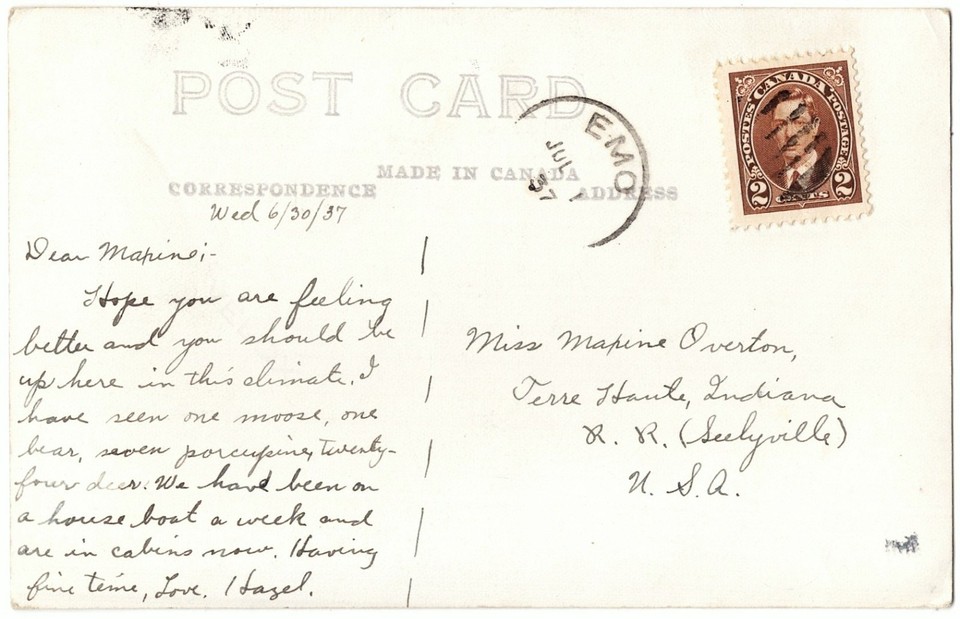 POST CARD
MADE IN CANADA
CORRESPONDENCE
ADDRESS
EMO
JUL
3
37
POSTES CANADA POSTAGE
2 CENTS 2
Wed 6/30/37
Dear Maxine:-
Hope you are feeling
better and you should be
up here in this climate. I
have seen one moose, one
bear, seven porcupine, twenty-
four deer. We have been on
a house boat a week and
are in cabins now. Having
fine time, Love. Hazel.
Miss Maxine Overton,
Terre Haute, Indiana
R. R. (Seelyville)
U. S. A.